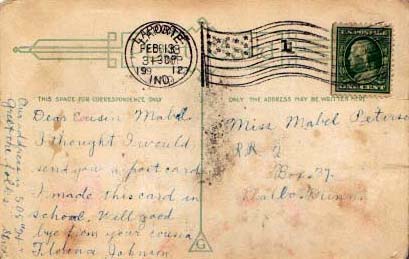 LAPORTE
FEB 13
3-30P
1912
IND.
1
U.S. POSTAGE
ONE CENT
THIS SPACE FOR CORRESPONDENCE ONLY
ONLY THE ADDRESS MAY BE WRITTEN HERE
Dear Cousin Mabel
I thought I would
send you a post card
I made this card in
school. Well good
bye from your cousin
Florence Johnson
Our address is 505
Greet the folks
Miss Mabel Peterson
RR 2
Box 37
G